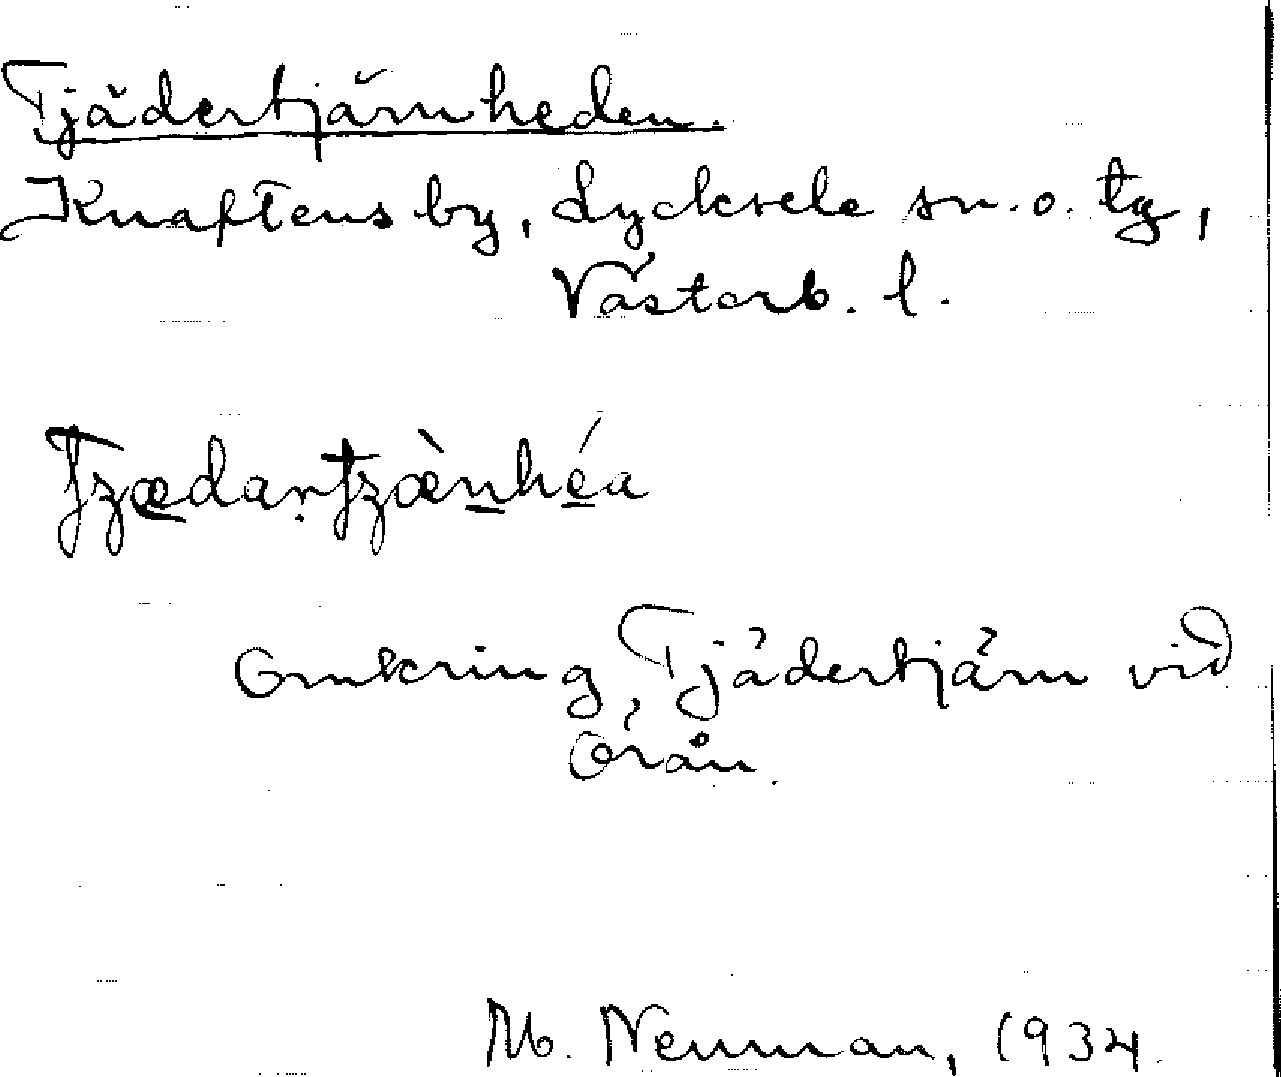 Tjädertjärnheden.
Knaftens by, Lycksele sn. o. tg,
Västerb. l.
TʒædarTʒæ̀nhéa
Omkring Tjädertjärn vid
Örån.
M. Neuman, 1934.